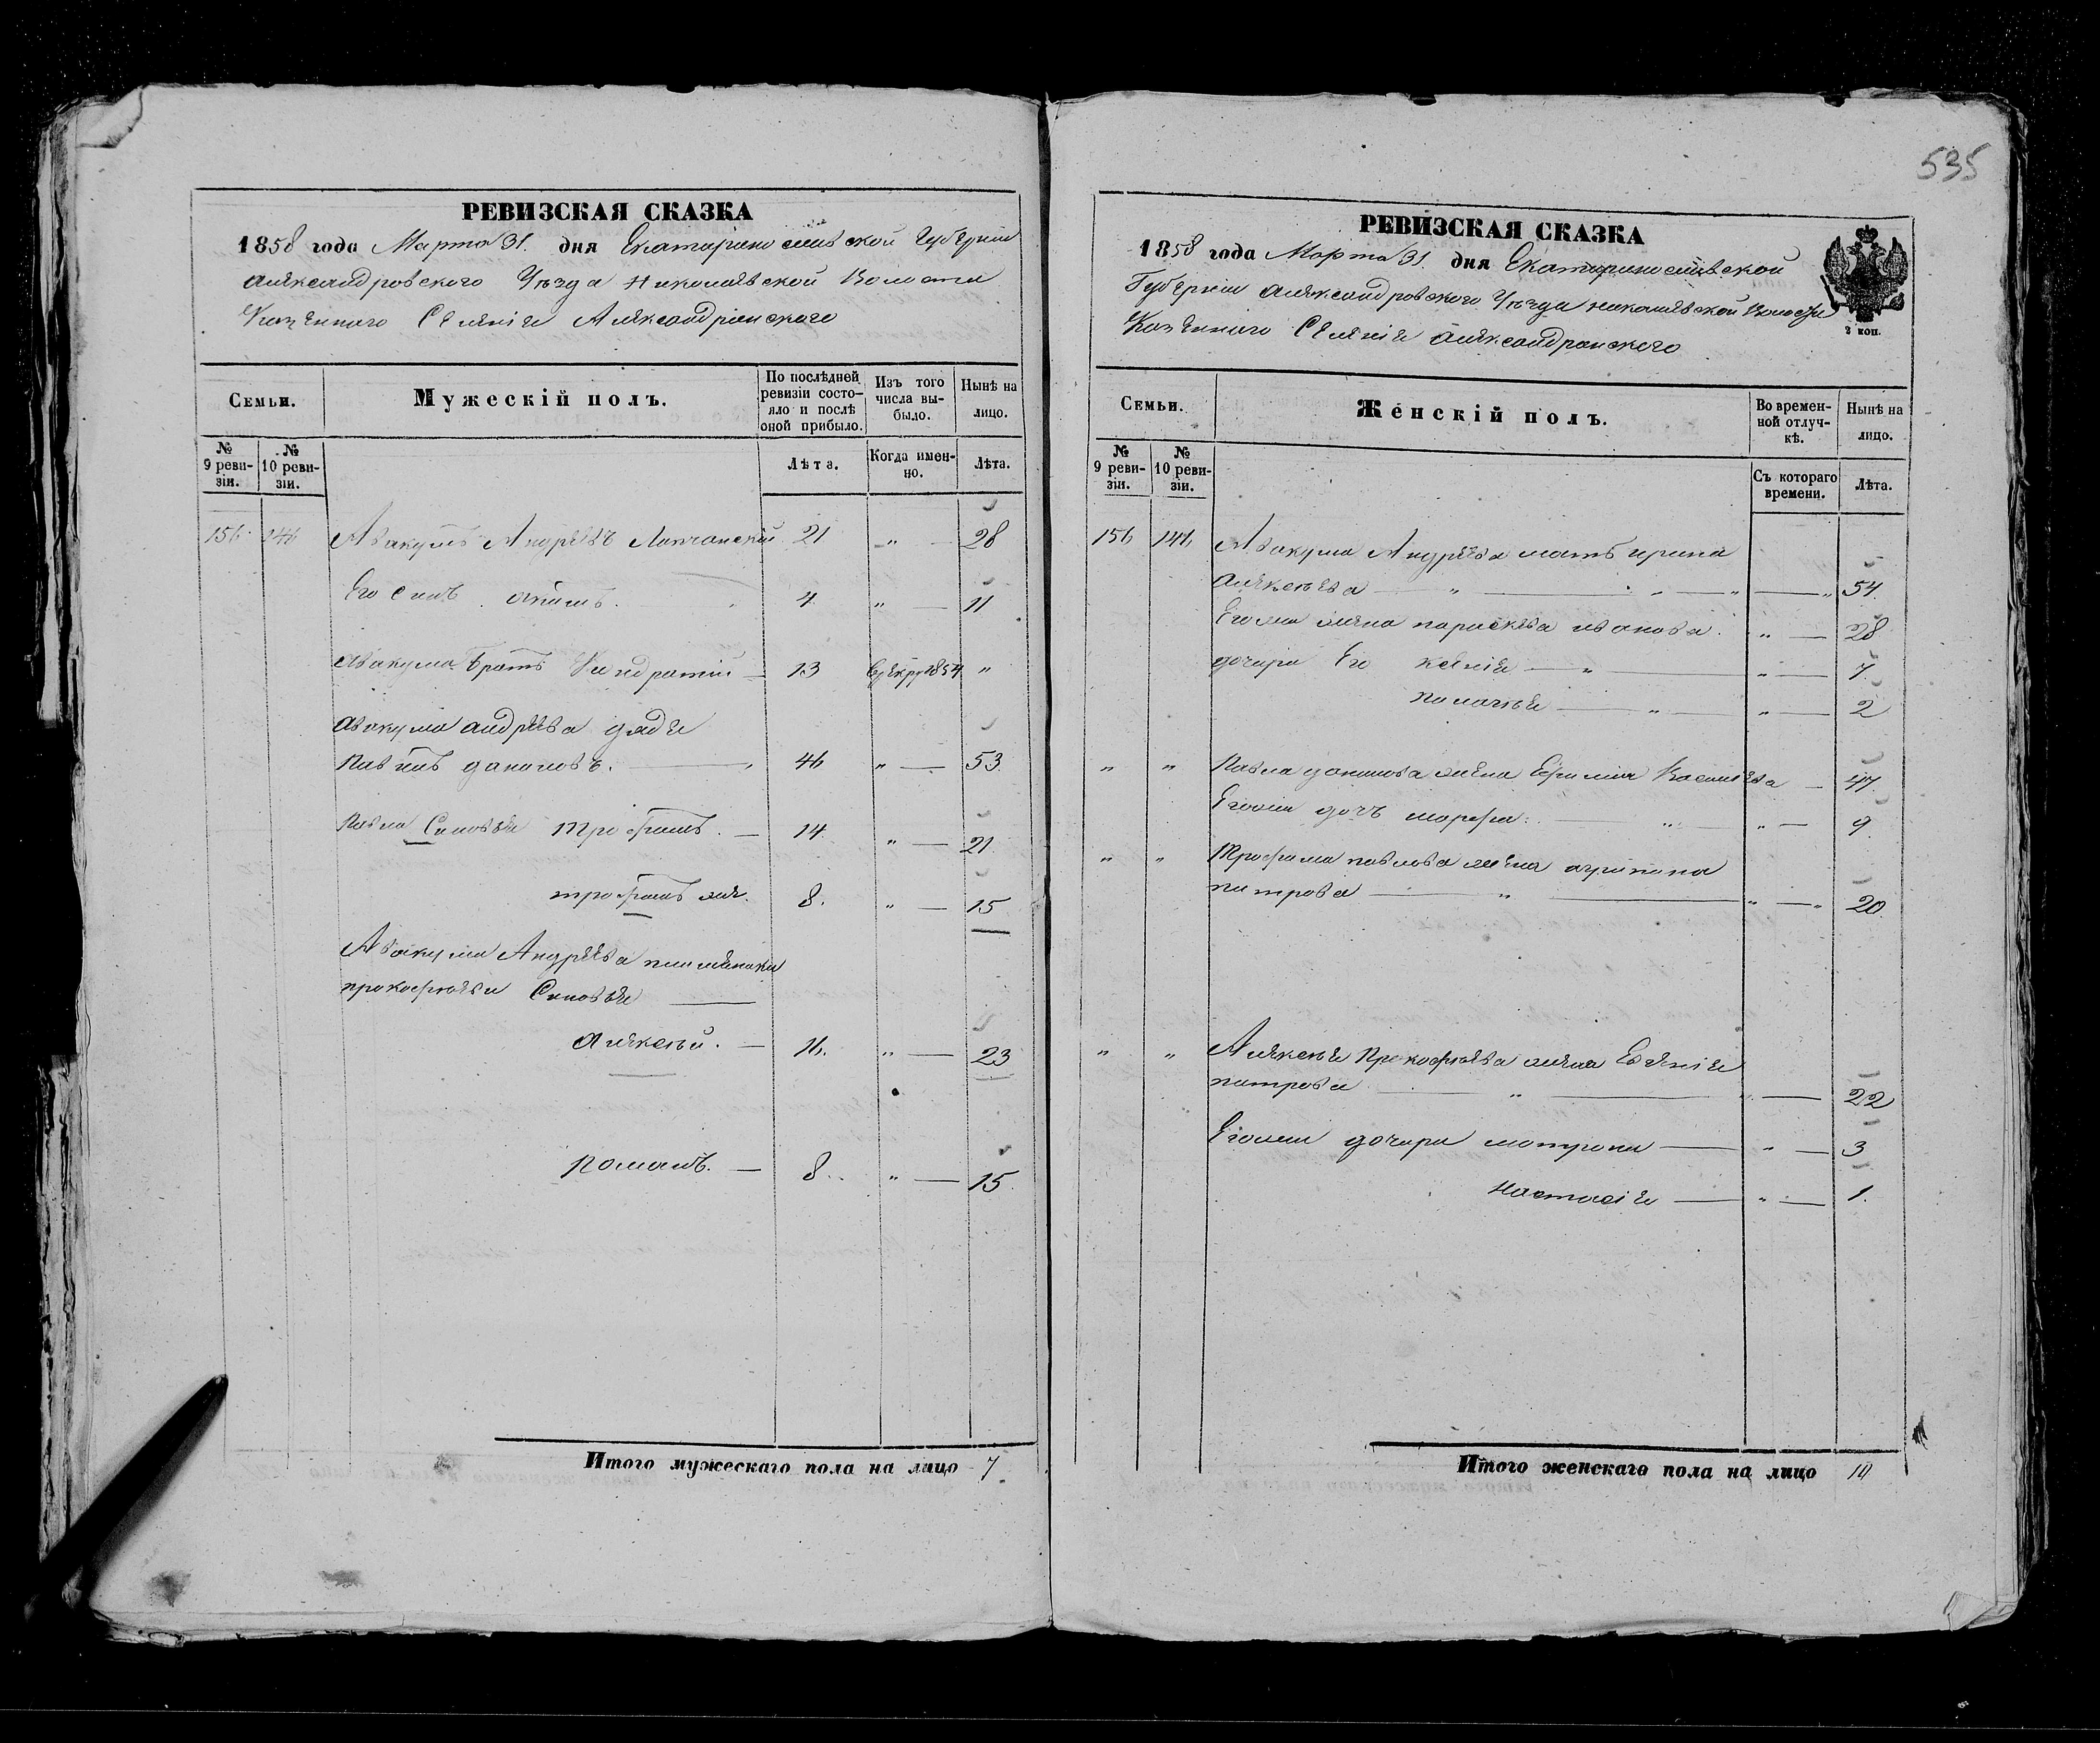 535
РЕВИЗСКАЯ СКАЗКА
1858 года Марта 31. дня Екатеринославской Губернии
Александровского Уезда Николаевской Волости
Казенного Селения Александрийского
Семьи.
Мужескій полъ.
По послѣдней ревизіи состояло и послѣ оной прибыло.
Изъ того числа выбыло.
Нынѣ на лицо.
№ 9 ревизіи.
№ 10 ревизіи.
Лѣта.
Когда именно.
Лѣта.
156 146 Авакумъ Андреевъ 21 „ — 28
Его синъ акимъ. 4 „ — 11
Авакума братъ Кондратий — 13 1854 „
Авакума андреева дяде
Павилъ даниловъ. — 46 „ — 53
Павла Синовье Трофимъ. — 14 „ — 21
трофимъ 8. „ — 15
Авакума Андреева племеники
прокофьеви Синовье —
Алексей. — 16. „ — 23
Романъ. — 8. „ — 15
Итого мужескаго пола на лицо 7
РЕВИЗСКАЯ СКАЗКА
1858 года Марта 31. дня Екатеринославской
Губернии Александровского Уезда николаевской Волости
Казенного Селения Александровского
2 коп.
Семьи.
Женскій полъ.
Во временной отлучкѣ.
Нынѣ на лицо.
№ 9 ревизіи.
№ 10 ревизіи.
Съ котораго времени.
Лѣта.
156 146 Авакума Андреева мать ирина
алексеева — „ — „ — „ 54
Егоже жена параскева иванова. „ — 28
дочери Его ксения — „ — „ — 7
пелагея — „ — „ — 2
„ „ Павла данилова жена Ефимия Васильева — 47
Егоже дочь марфа: — „ — „ — 9
„ „ Трофима павлова жена агрипина
питрова — „ — „ — „ 20
„ „ Алексея Прокофьева жена Евгения
питрова — „ — „ — 22
Егоже дочери матрона — „ — 3
настасия — „ — 1.
Итого женскаго пола на лицо 10